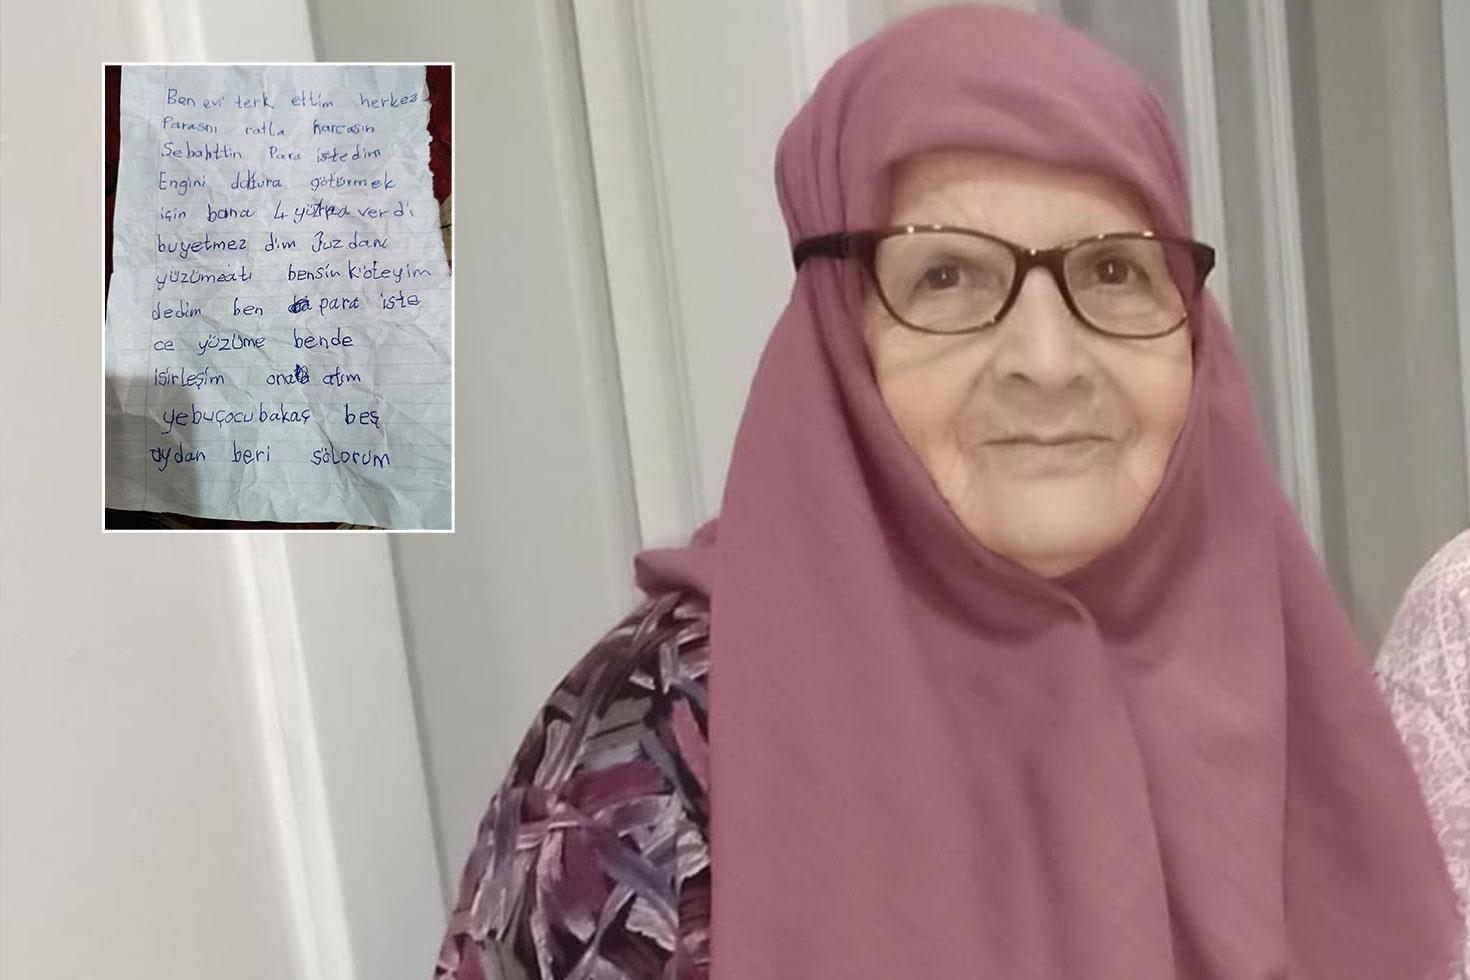 Ben evi terk ettim herkez
Parasnı ratla harcasın
Sebahttin Para istedim
Engini doktura götürmek
için bana 4 yüz verdi
buyetmez dim
yüzümeatı bensin köteyim
dedim ben para iste
ce yüzüme bende
isirleşim ona atım
yebuçocubakaç beş
aydan beri sölorum